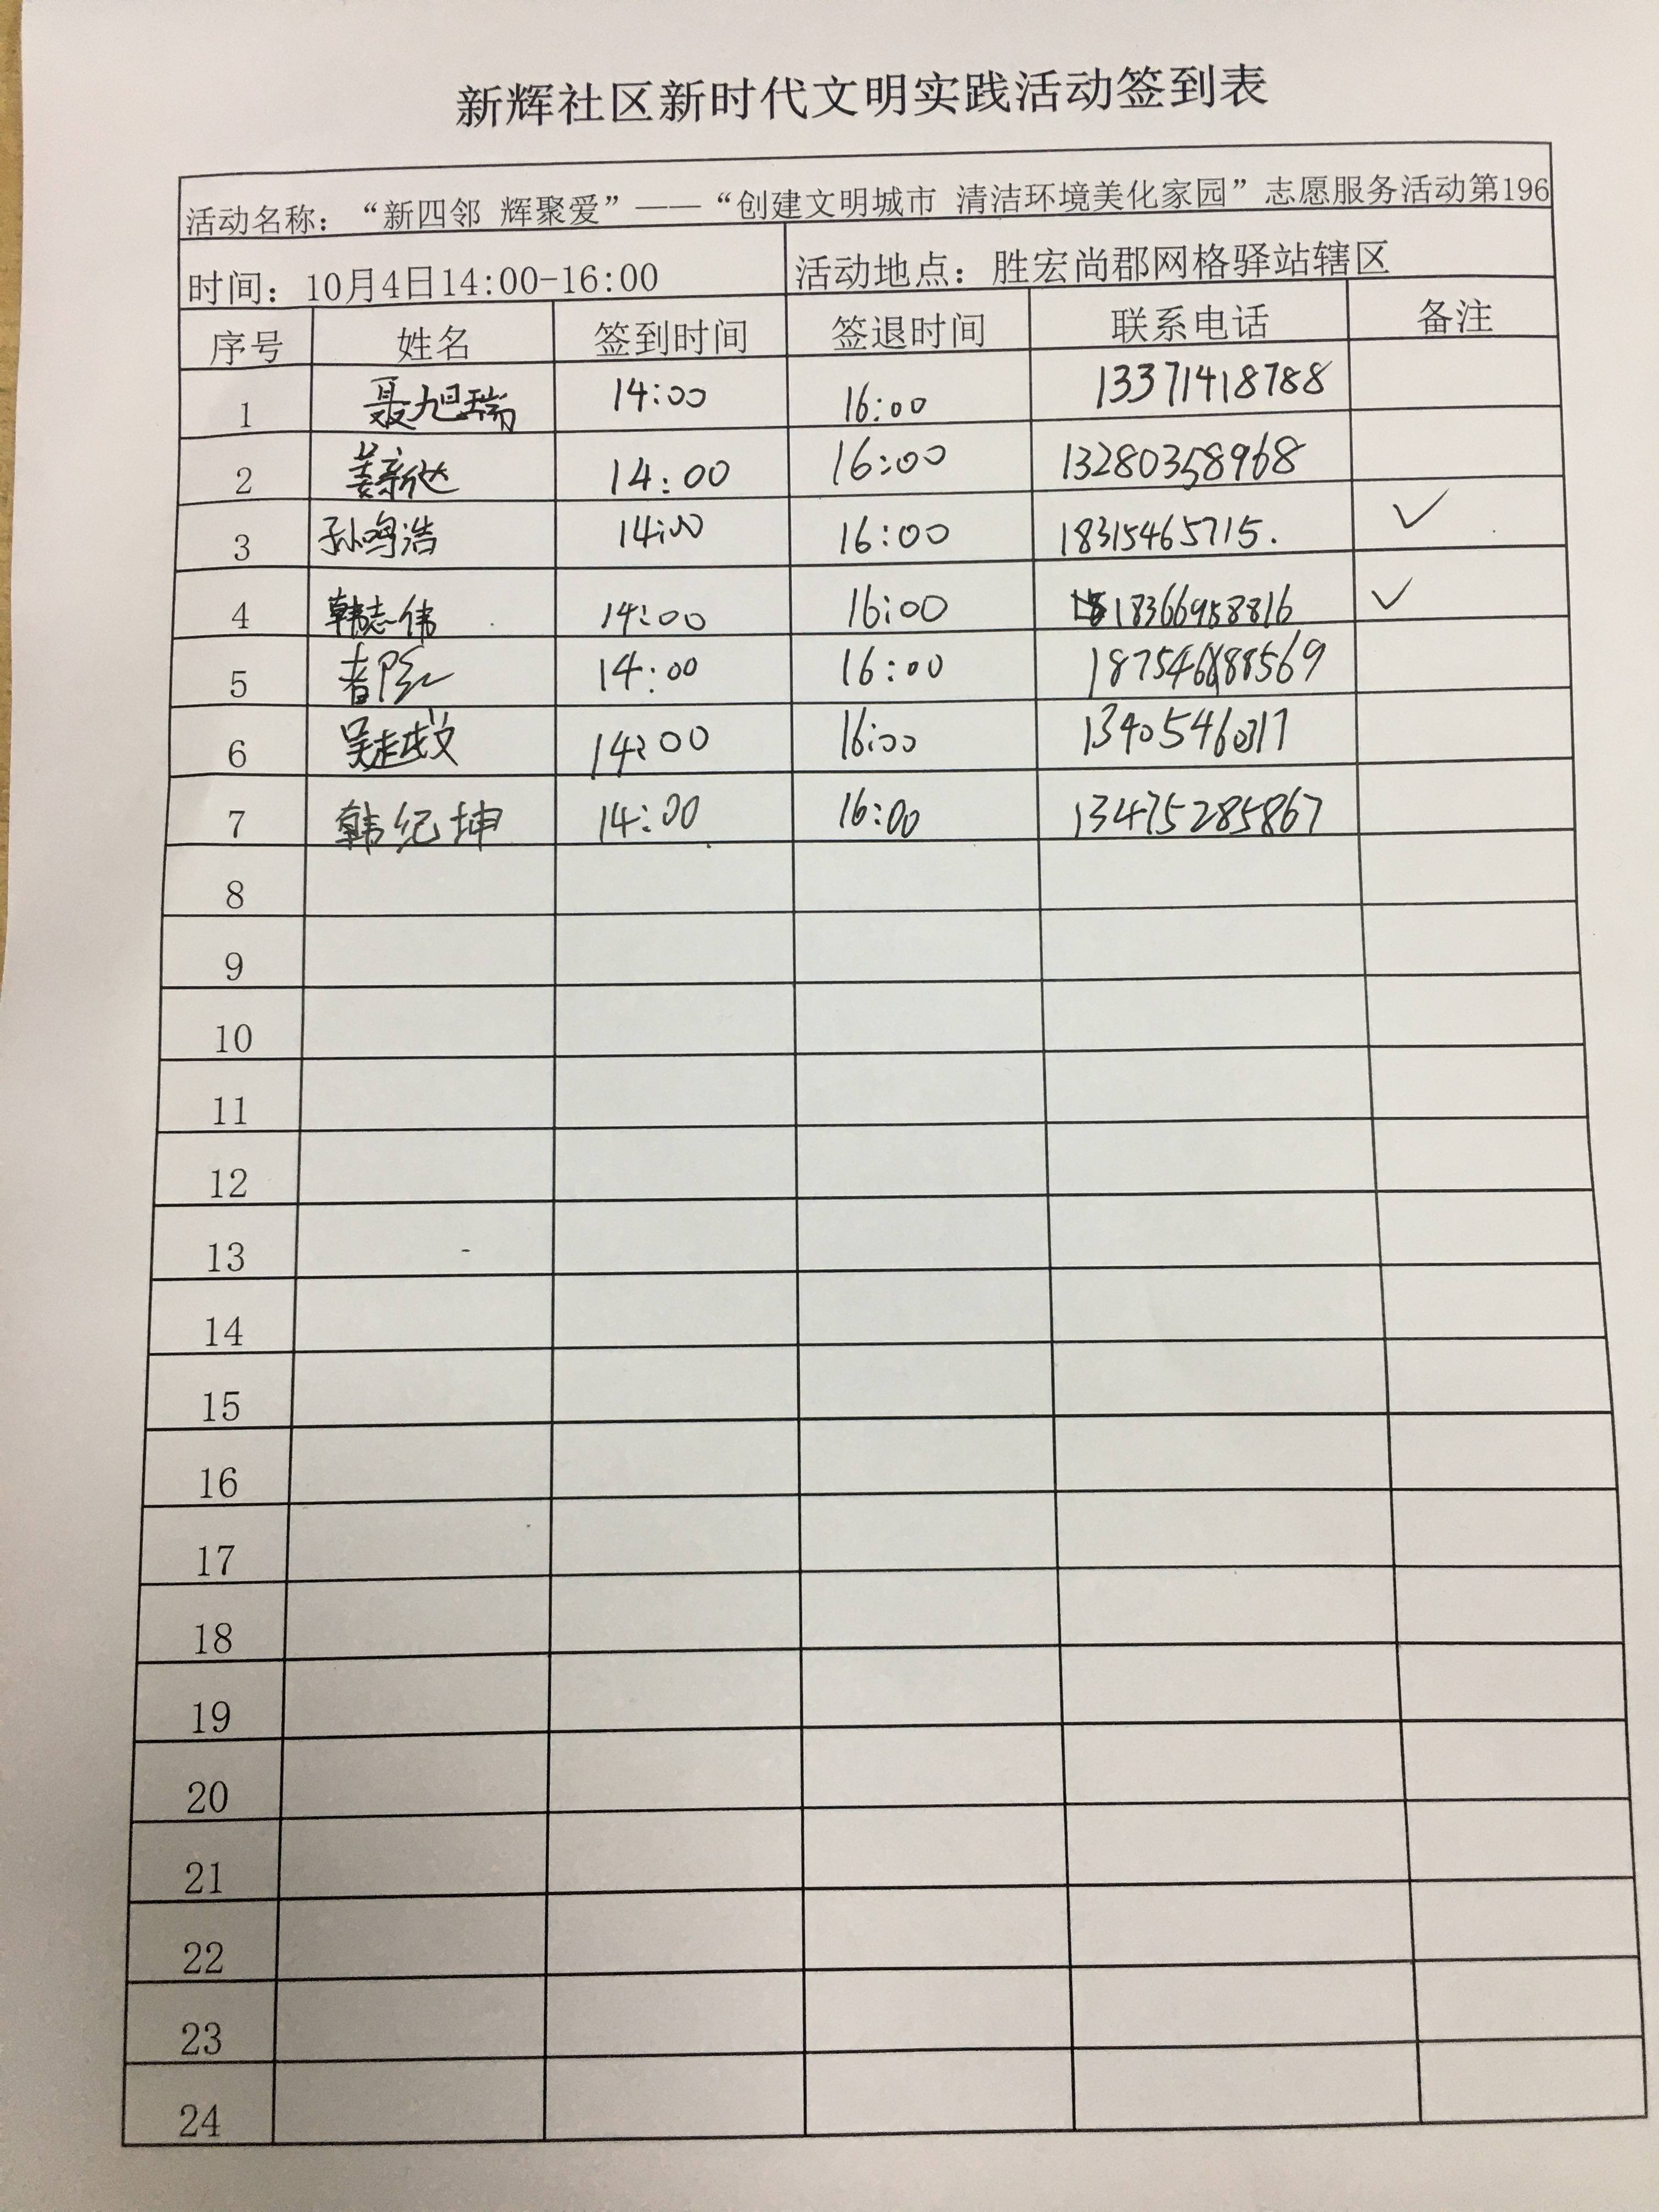 新辉社区新时代文明实践活动签到表
活动名称：“新四邻 辉聚爱”——“创建文明城市 清洁环境美化家园”志愿服务活动第196
时间：10月4日14:00-16:00 活动地点：胜宏尚郡网格驿站辖区
序号 姓名 签到时间 签退时间 联系电话 备注
1 聂旭瑞 14:00 16:00 13371418788
2 14:00 16:00 13280358968
3 孙鸣浩 14:00 16:00 18315465715. ✓
4 韩志伟 14:00 16:00 18366958816 ✓
5 14:00 16:00
6 14:00 16:00
7 韩纪坤 14:00 16:00 13475285867
8
9
10
11
12
13
14
15
16
17
18
19
20
21
22
23
24